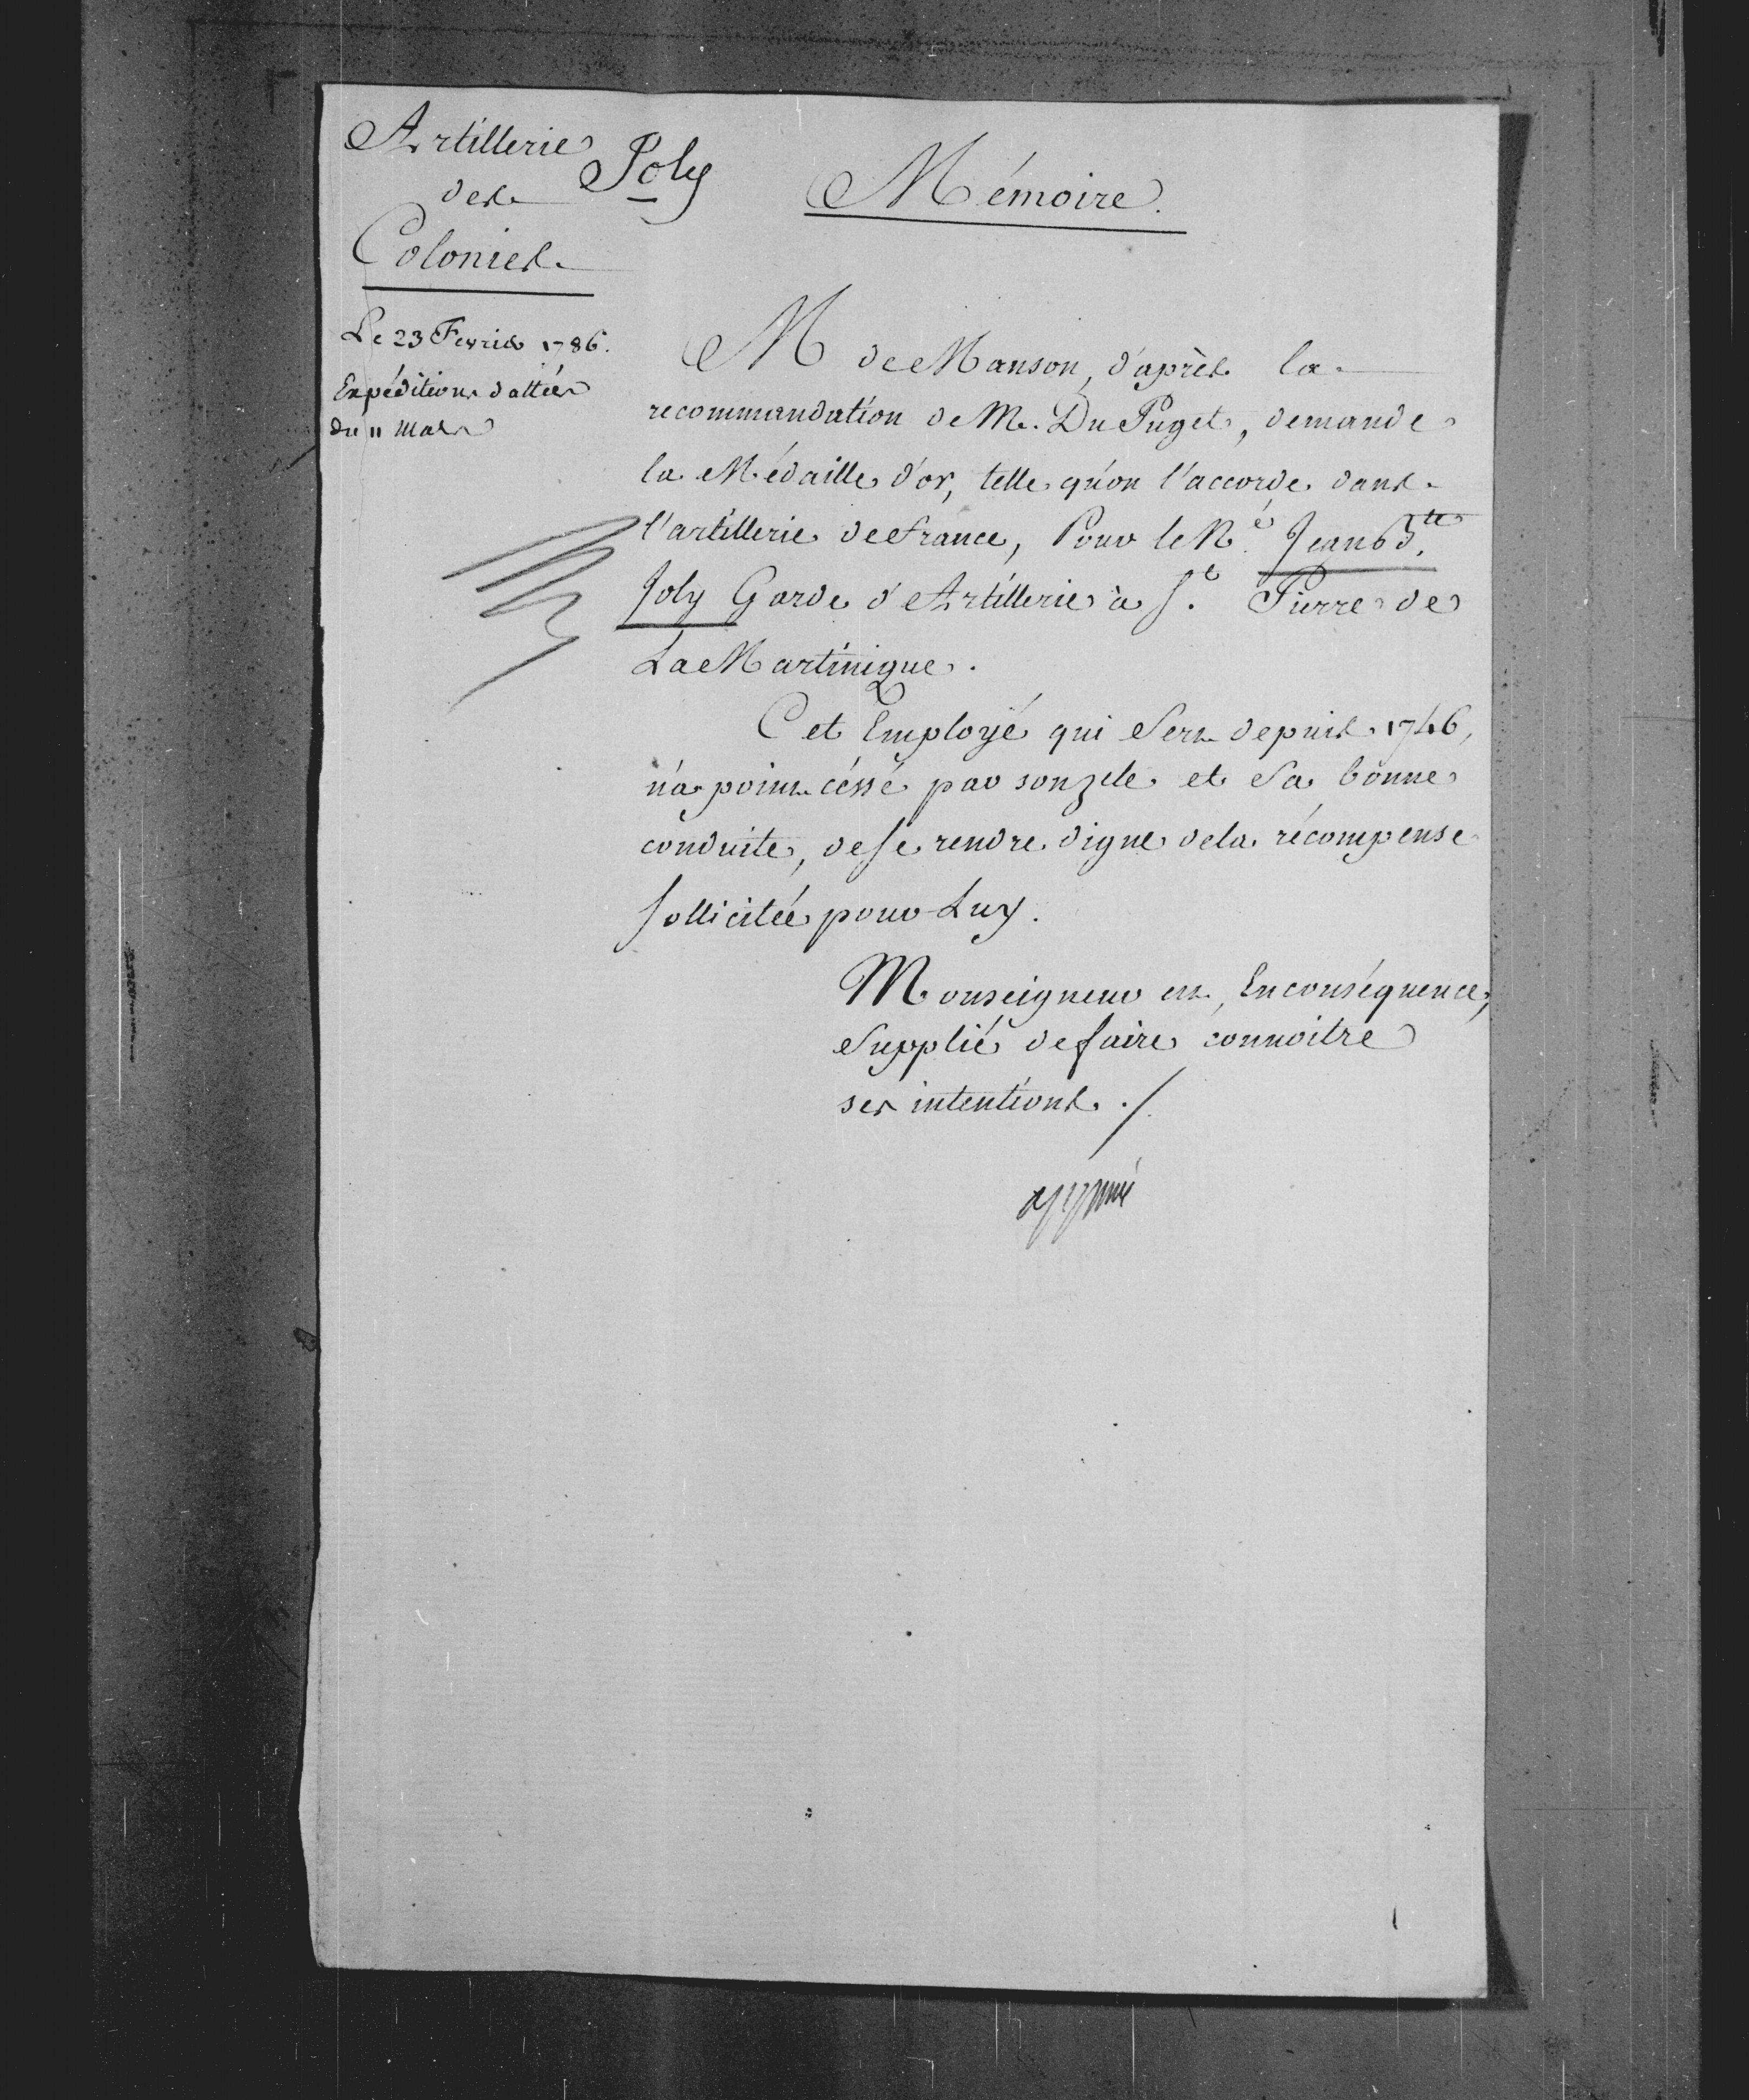 Artillerie
des
Colonies
Joly
Mémoire.
Le 23 Fevrier 1786.
Expéditions dattées
du 11 Mars
M de Manson, d'après la
recommandation de M. Du Puget, demande
la Médaille d'or, telle qu'on l'accorde dans
l'artillerie de france, Pour le Né. Jean Bte.
Joly Garde d'Artillerie à St. Pierre de
La Martinique.
Cet Employé qui Sert depuis 1746,
n'a point céssé par son zele et Sa bonne
conduite, de se rendre digne de la récompense
sollicitée pour Luy.
Monseigneur est, En conséquence,
Supplié de faire connoitre
ses intentions ./.